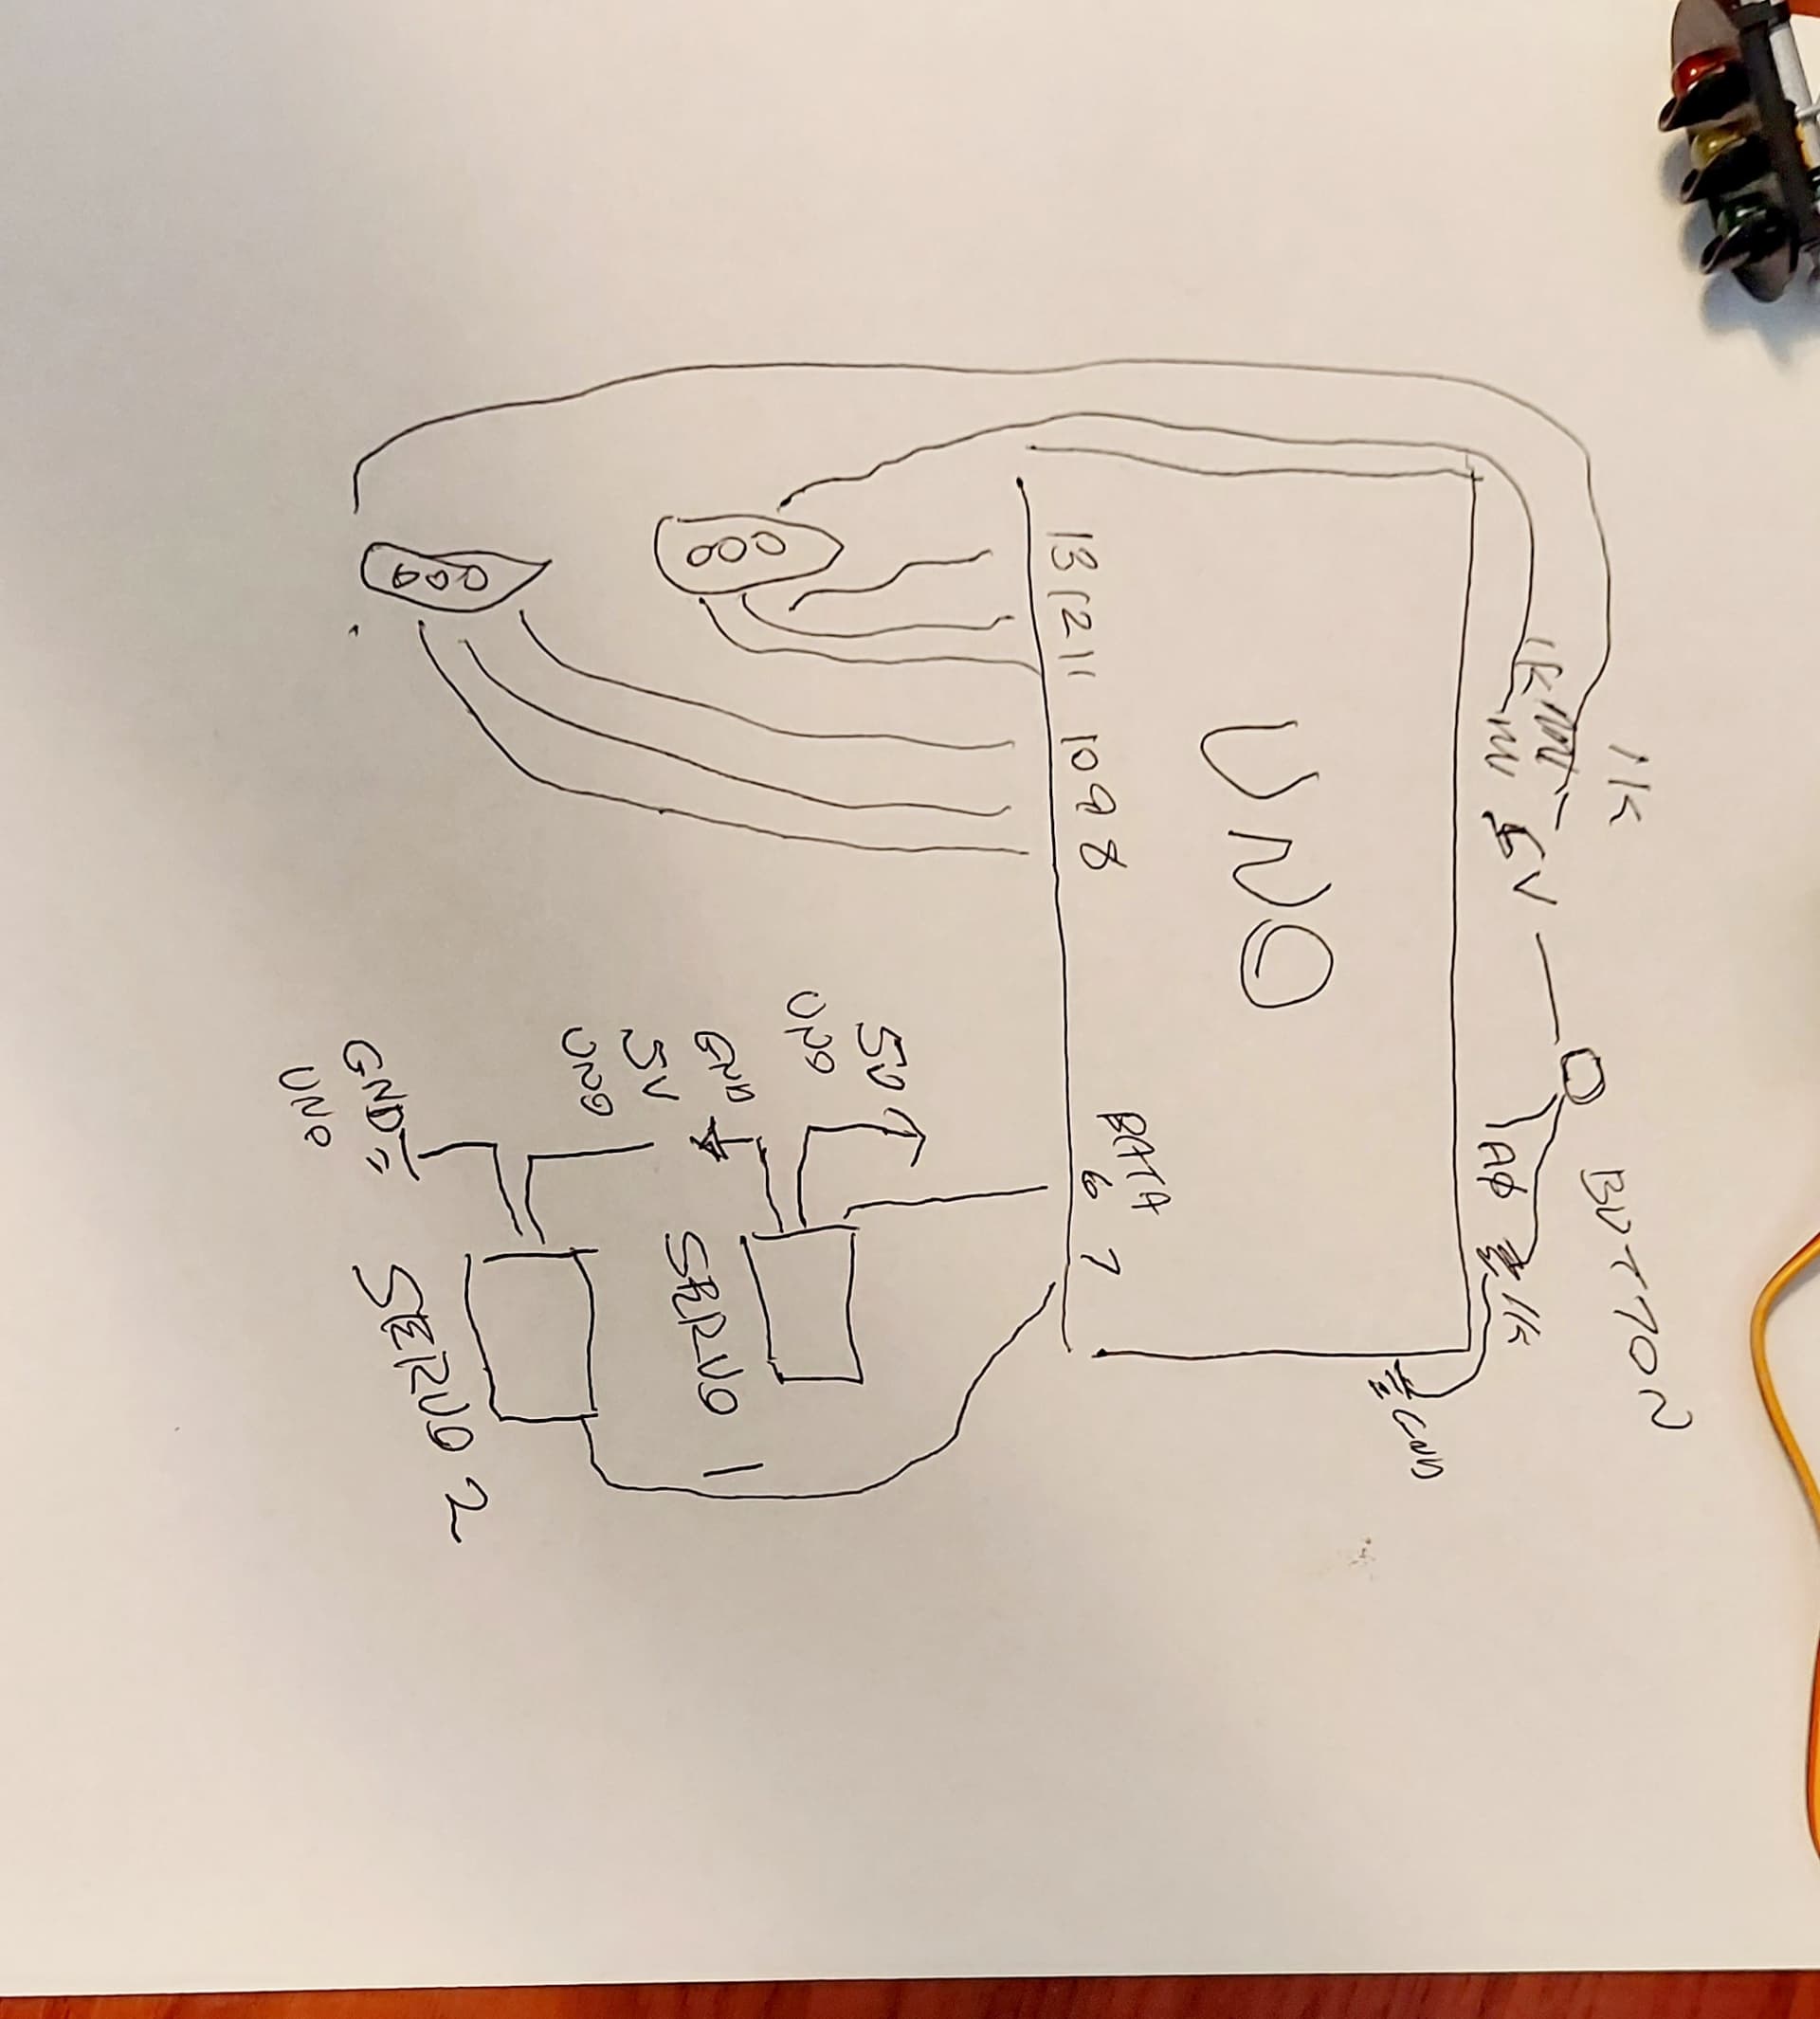 1K
BUTTON
1K
5V
AØ
1K
GND
UNO
DATA
13 12 11 10 9 8 6 7
5V
UNO
GND
SERVO 1
5V
UNO
SERVO 2
GND
UNO